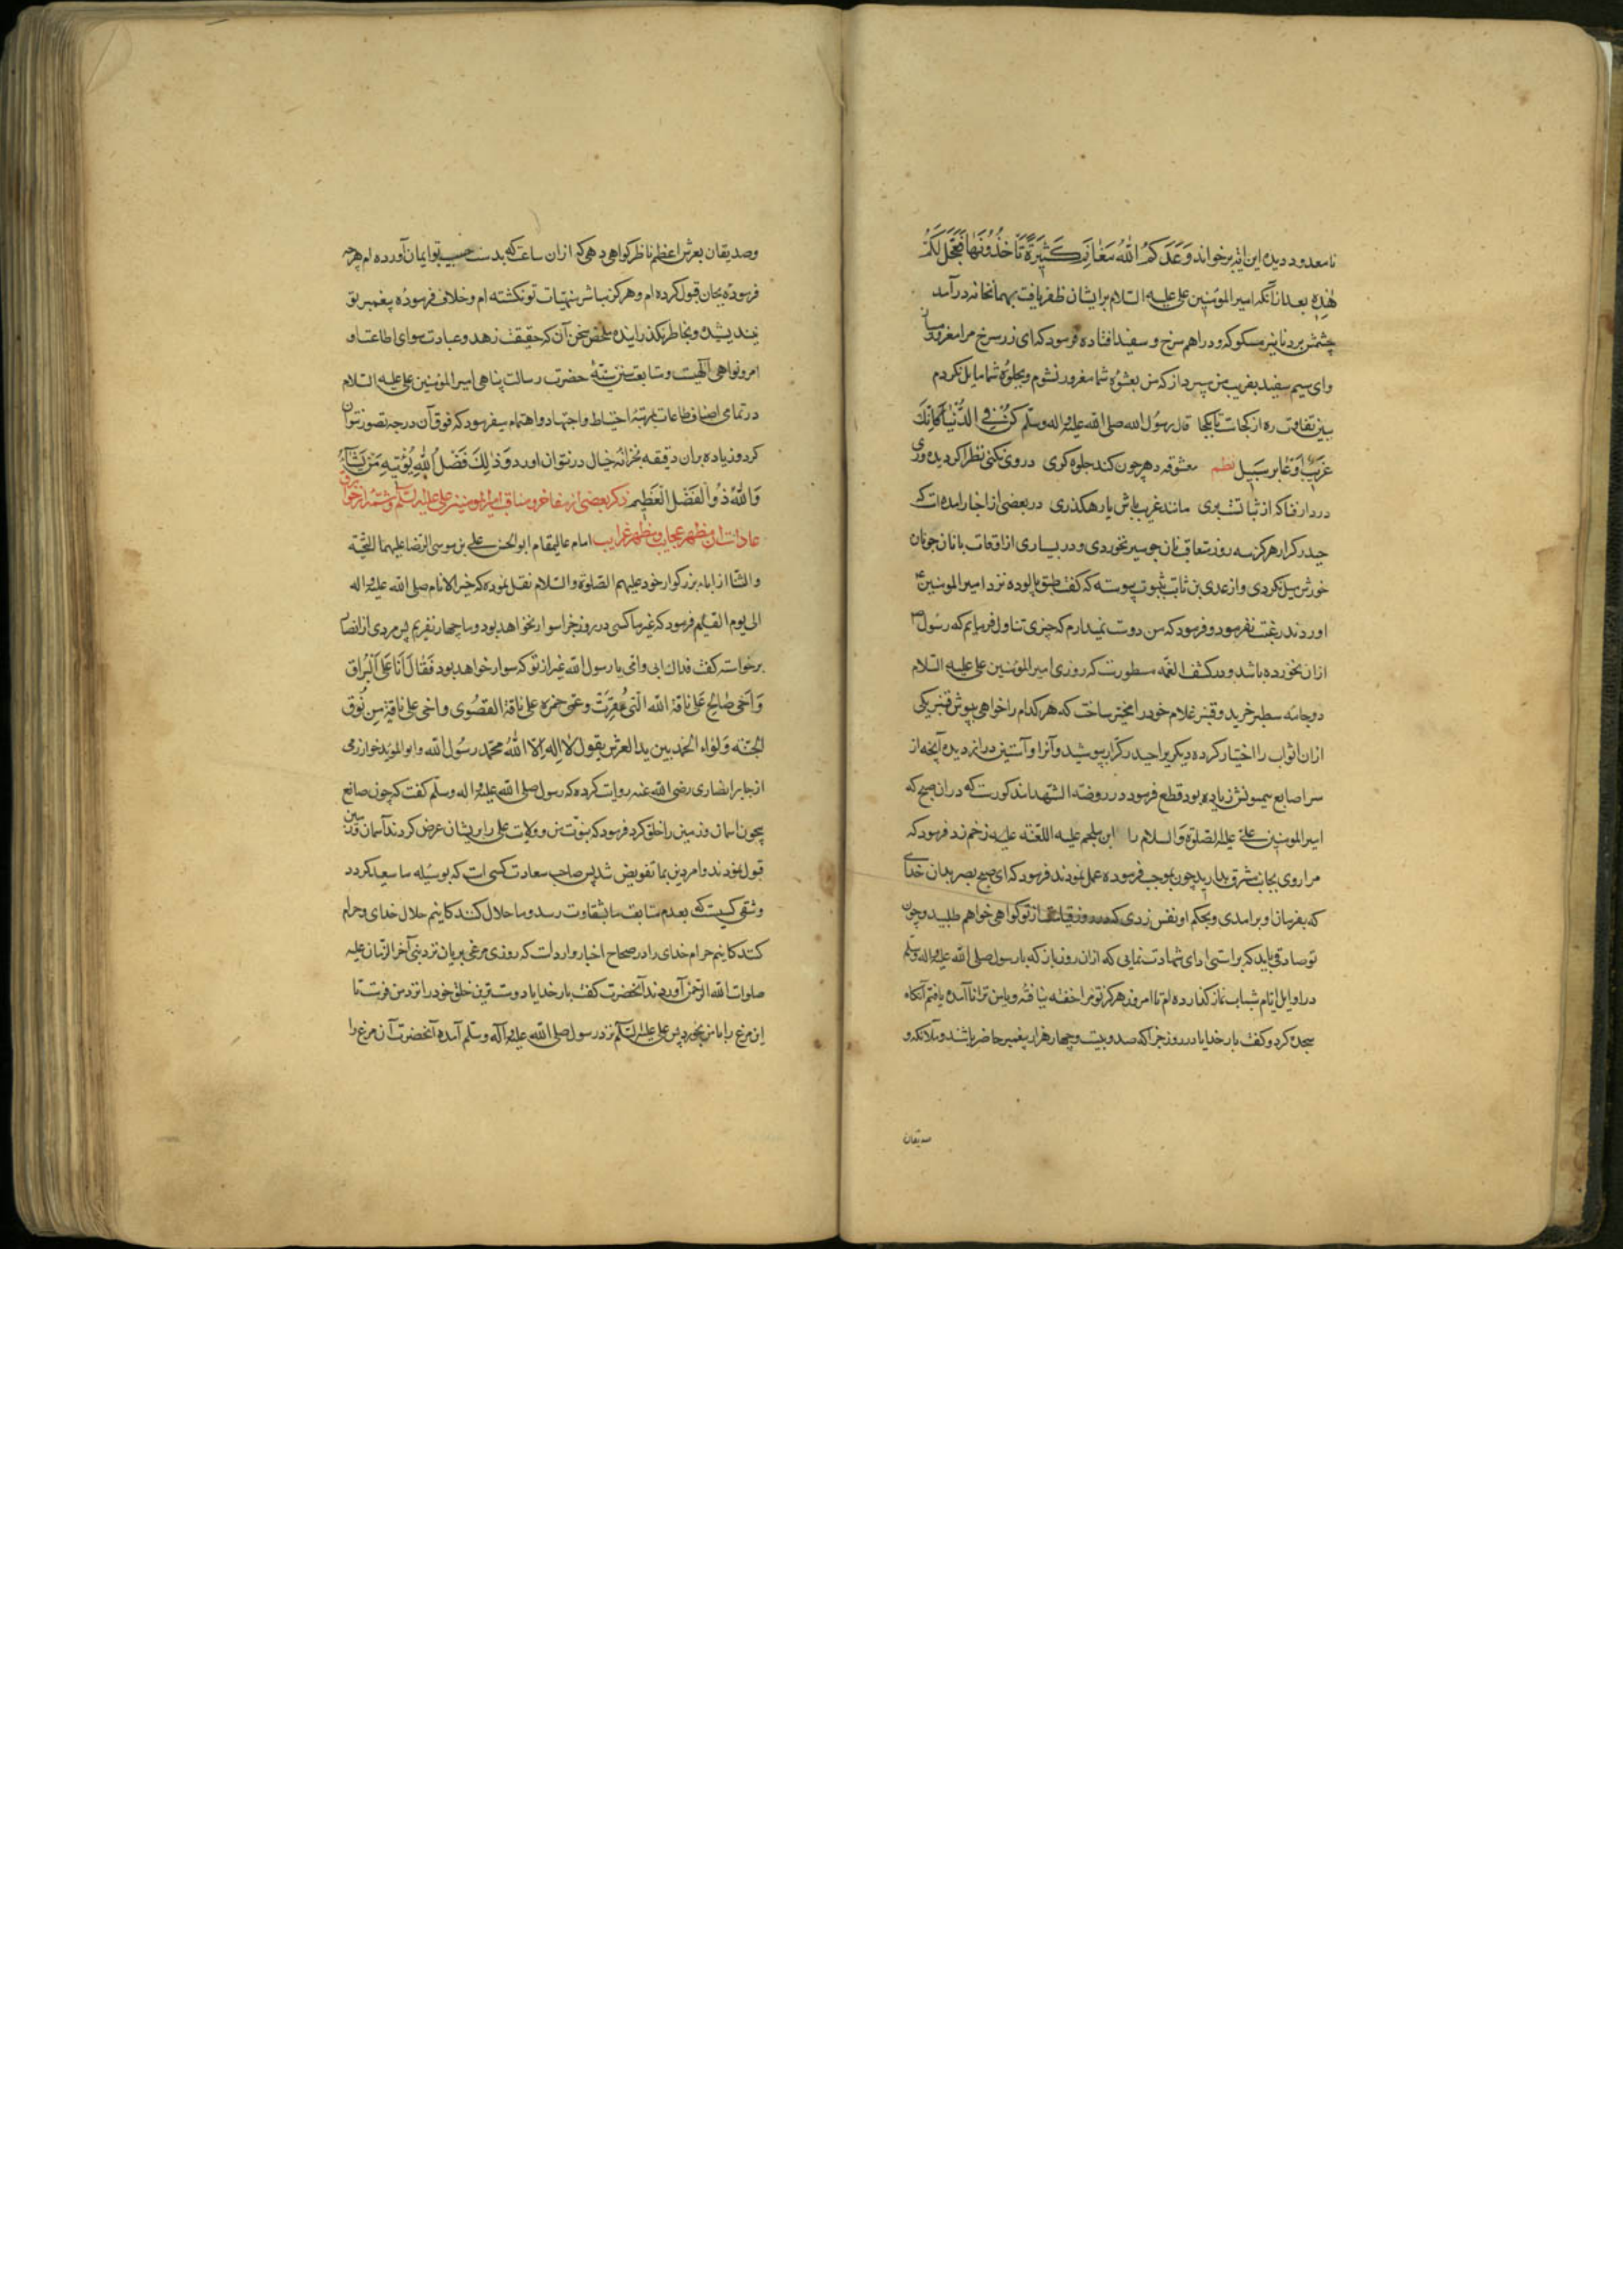 نامعدود دیده این آیه برخواند وَعَدَكُمُ اللّٰهُ مَغَانِمَ كَثِيرَةً تَأْخُذُونَهَا فَعَجَّلَ لَكُمْ
هٰذِهِ بعد از آنکه امیر المؤمنین علی علیه السلام برایشان ظفر یافت بهمانخانه درآمد
چشمش بر دنانیر مسکوکه و دراهم سرخ و سفید افتاده فرمود که ای زر سرخ مرا مغرور مساز
وای سیم سفید بفریب من مپرداز که من بعشوه شما مغرور نشوم و بجلوه شما مایل نکردم
ببین تفاوت ره از کجاست تا بکجا قال رسول الله صلی الله علیه واله وسلم كُنْ فِي الدُّنْيَا كَأَنَّكَ
غَرِيبٌ أَوْ عَابِرُ سَبِيلٍ نظم معشوقه دهر چون کند جلوه کری در وی نکنی نظر اکر دیده وری
در دار فنا که از ثبات است بری مانند غریب باش یا رهکذری در بعضی از اخبار امده است که
حیدر کرار هرکز سه روز متعاقب نان جو سیر نخوردی و در بسیاری از اوقات با نان جو نان
خورش میل نکردی و از عدی بن ثابت بثبوت پیوسته که کفت طبق پالوده نزد امیر المومنین
اوردند رغبت نفرمود و فرمود که من دوست نمیدارم که چیزی تناول فرمایم که رسول
ازان نخورده باشد و در کشف الغمه مسطورست که روزی امیر المؤمنین علی علیه السلام
دو جامه سطبر خرید و قنبر غلام خود را مخیر ساخت که هر کدام را خواهی بپوش قنبر یکی
ازان اثواب را اختیار کرده دیکریرا حیدر کرار بپوشید و آنرا و آستین دراز دیده آنچه از
سر اصابع میمونش زیاده بود قطع فرمود در روضه الشهدا مذکورست که در ان صبح که
امیر المومنین علی علیه الصلوة والسلام را ابن ملجم علیه اللعنة علیه زخم زد فرمود که
مرا روی بجانب مشرق بدارید چون بموجب فرموده عمل نمودند فرمود که ای صبح بصر بدان خدای
که بفرمان او برامدی و بحکم او نفس زدی که در روز قیامت از تو کواهی خواهم طلبید و چون
تو صادقی باید که براستی ادای شهادت نمایی که ازان روز باز که با رسول صلی الله علیه واله وسلم
در اوایل ایام شباب نماز کذارده ام تا امروز هرکز تو مرا خفته نیافته و پاس ترا ناآمده یافتم آنکاه
سجده کرد و کفت بار خدایا در روز جزا که صد و بیست و چهار هزار پیغمبر حاضر باشند و ملائکه و
صدیقان
وصدیقان بعرش اعظم ناظر کواهی دهی که ازان ساعت که بدست حبیب تو ایمان آورده ام هرچه
فرموده بجان قبول کرده ام و هرکز مباشر منهیات تو نکشته ام و خلاف فرموده پیغمبر تو
نیندیشیده و بخاطر نکذرانیده ملخص سخن آن که حقیقت زهد و عبادت سوای اطاعت او
امر و نواهی الهیست و متابعت سنن سنیه حضرت رسالت پناهی امیر المؤمنین علی علیه السلام
در تمامی اصناف طاعات بمرتبه احتیاط و اجتهاد و اهتمام میفرمود که فوق آن درجه تصور نتوان
کرد و زیاده بران دقیقه بخزانه خیال در نتوان اورد وَذٰلِكَ فَضْلُ اللّٰهِ يُؤْتِيهِ مَنْ يَشَاءُ
وَاللّٰهُ ذُو الْفَضْلِ الْعَظِيمِ ذکر بعضی از مفاخر و مناقب امیر المومنین علی علیه السلم و شمه از خوارق
عادات ان مظهر عجایب و مظهر غرایب امام عالیمقام ابو الحسن علی بن موسی الرضا علیهما التحیة
والثنا از اباء بزرکوار خود علیهم الصلوة والسلام نقل نموده که خیر الانام صلی الله علیه واله
الی یوم القیام فرمود که غیر ما کسی در روز جزا سوار نخواهد بود و ما چهار نفریم پس مردی از انصار
برخواسته کفت فداك ابی وامی یا رسول الله غیر از تو که سوار خواهد بود فَقَالَ أَنَا عَلَى الْبُرَاقِ
وَأَخِي صَالِحٌ عَلَى نَاقَةِ اللّٰهِ الَّتِي عُقِرَتْ وعمی حمزه علی ناقة القصوی واخی علی ناقة من نُوق
الجنّة وَلِوَاء الحمد بین ید العرش یقول لَا إِلٰهَ إِلَّا اللّٰهُ محمّد رسُول الله و ابو الموید خوارزمی
از جابر انصاری رضی الله عنه روایت کرده که رسول صلی الله علیه واله وسلم کفت که چون صانع
بیچون اسمان و زمین را خلق کرد فرمود که نبوت من و ولایت علی را بریشان عرض کردند آسمان و زمین
قبول نمودند و امر دین بما تفویض شد پس صاحب سعادت کسی است که بوسیله ما سعید کردد
و شقی کسیست که بعدم متابعت ما بشقاوت رسد و ما حلال کنندکانیم حلال خدای و حرام
کنندکانیم حرام خدای را در صحاح اخبار وارد است که روزی مرغی بریان نزد نبی آخر الزمان علیه
صلوات الله الرحمن آوردند آنحضرت کفت بار خدایا دوست ترین خلق خود را نزد من فرست تا
این مرغ را با من بخورد پس علی علیه السلم نزد رسول صلی الله علیه وآله وسلم آمده آنحضرت آن مرغ را